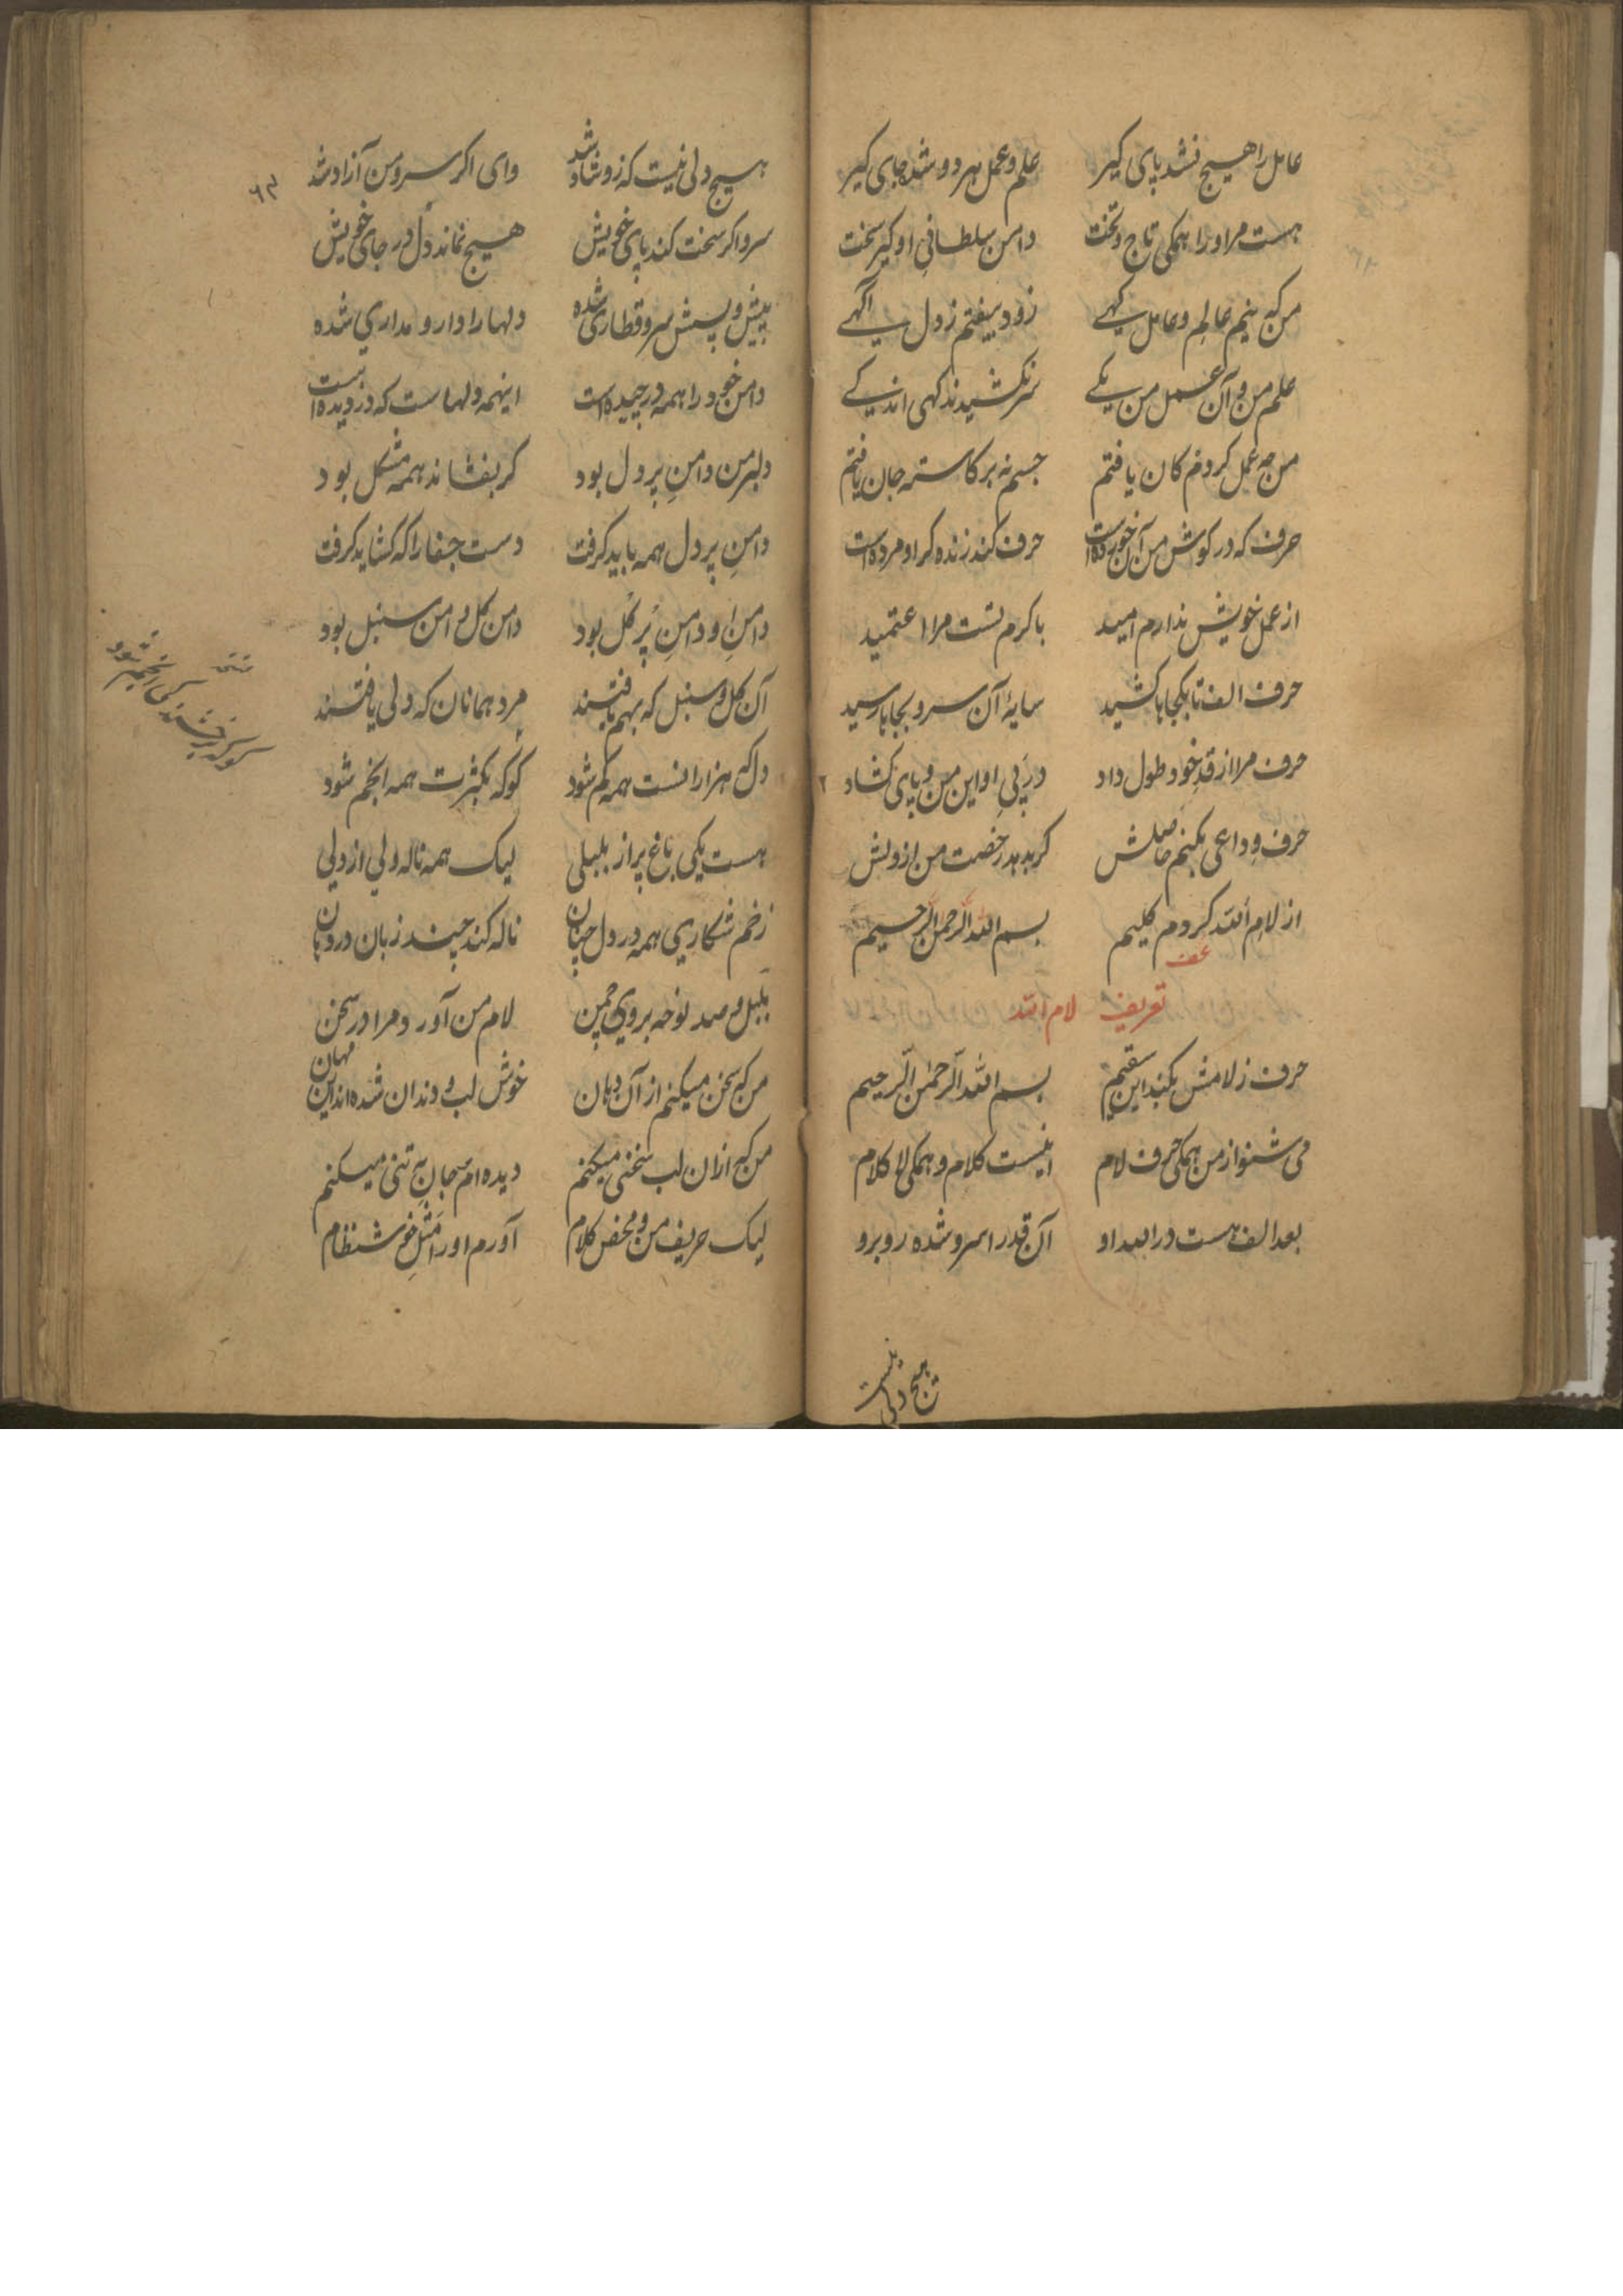 عامل را هیچ نشد پای کیر علم و عمل هر دو شد جای کیر
هست مر او را همکی تاج و تخت دامن سلطانی او کیر سخت
من که نیم عالم و عامل کهی زود بیفتم ز دل آکهی
علم من و آن عمل من یکی سر نکشیدند کهی اندکی
من چه عمل کردم کان یافتم جسم نه بر کاسته جان یافتم
حرف که در کوش من آن خورده است حرف کند زنده کر او مرده است
از عمل خویش ندارم امید با کرم تست مرا اعتمید
حرف الف تا بکجاها کشید سایهٔ آن سرو بجاها رسید
حرف مرا از قد خود طول داد در پی او این من و پای کشاد
حرف وداعی بکنم حاصلش کر بدهد رخصت من از ولش
از لام الله کردم کلیم بسم الله الرحمن الرحیم
تعریف لام الله
حرف ز لامش بکند این سقیم بسم الله الرحمن الرحیم
می شنو از من همکی حرف لام اینست کلام و همکی لا کلام
بعد الف هست در ابعد او آن قدر ا سرو شده روبرو
هیچ دلی نیست
۶۳
هیچ دلی نیست که زو شاد شد وای اکر سرو من آزاد شد
سرو اکر سخت کند پای خویش هیچ نماند دل در جای خویش
پیش و پسش سرو قطاری شده دلها را دار و مداری شده
دامن خود را همه در چیده است اینهمه دلهاست که دزدیده است
دلبر من دامن پر دل بود کر بفشاند همه مشکل بود
دامن پر دل همه باید کرفت دست جفا را که کشاید کرفت
دامن او دامن پر کل بود دامن کل دامن سنبل بود
آن کل و سنبل که بهم بافتند مرد همانان که دلی یافتند
دل که هزارانست همه کم شود کوکه بکثرت همه انجم شود
هست یکی باغ پر از بلبلی لیک همه ناله ولی از دلی
زخم شکاری همه در دل چنان ناله کند چند زبان در دهان
بلبل و صد نوحه بروی چمن لام من آورد مرا در سخن
من که سخن میکنم از آن دهان خوش لب و دندان شده اند این مهان
من که ازان لب سخنی میکنم دیده ام جان چه تنی میکنم
لیک حریف من و محض کلام آورم او را مثل خوش نظام